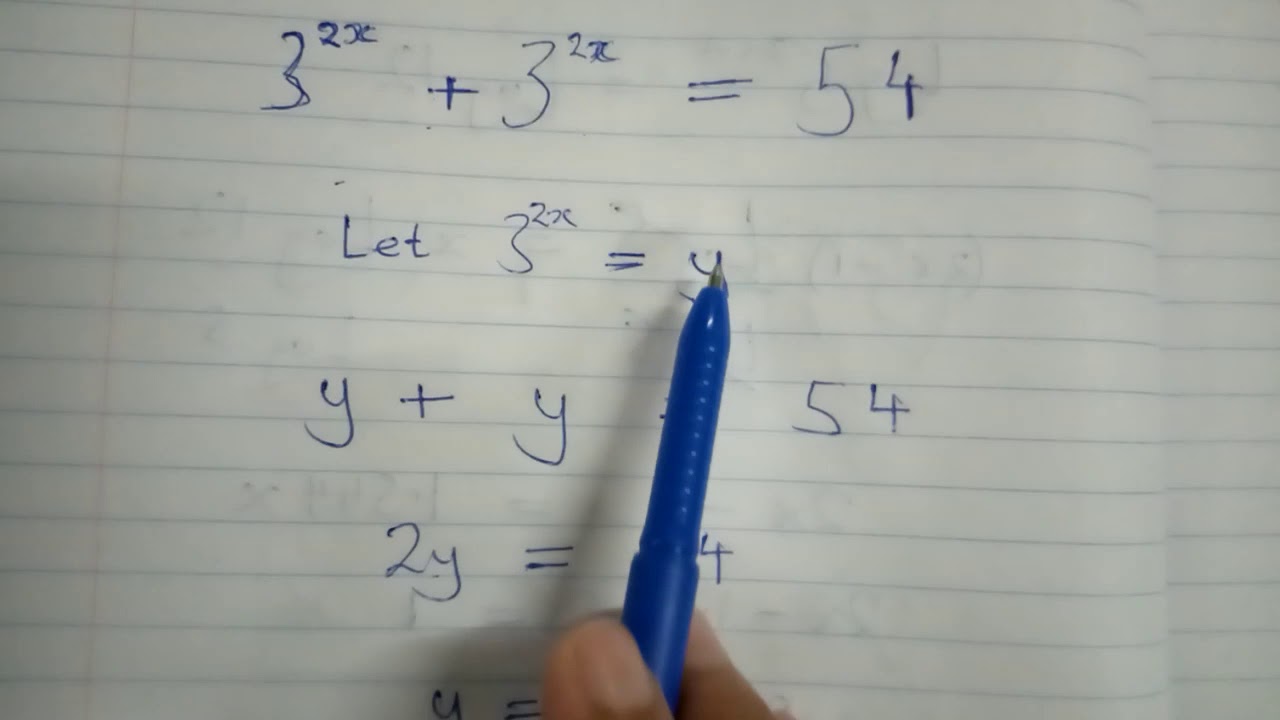 3^{2x} + 3^{2x} = 54
Let 3^{2x} = y
y + y = 54
2y = 4
y =